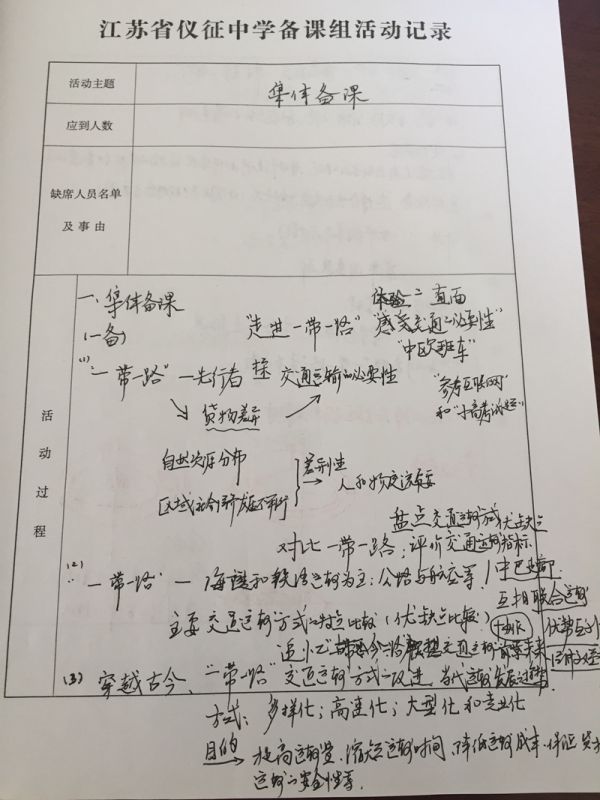 江苏省仪征中学备课组活动记录
活动主题
集体备课
应到人数
缺席人员名单
及事由
活动过程
一、集体备课
(一备)
"走进一带一路"
体验 直面
"感受交通必要性"
"中欧班车"
(1)
"一带一路" 一先行者 探 交通运输的必要性
"参考互联网"
和"小高考试题"
货物差异
自然资源分布
差别性
人和物交流需要
盘点交通运输方式优缺点
对比一带一路,评价交通运输指标
(2)
"一带一路" — 海运和铁路运输为主;公路与航空等
中巴走廊
互相联合运输
主要交通运输方式的特点比较(优缺点比较)
(3) 穿越古今、"一带一路"交通运输方式的改进、当代运输发展
方式:多样化;高速化;大型化和专业化
目的 提高运输量、缩短运输时间、降低运输成本、保证
运输的安全性等